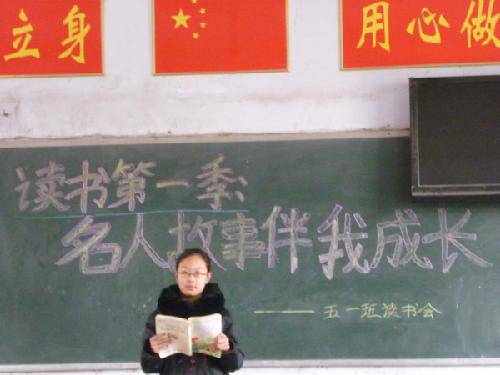 立身
用心做
读书第一季:
名人故事伴我成长
——五一班读书会